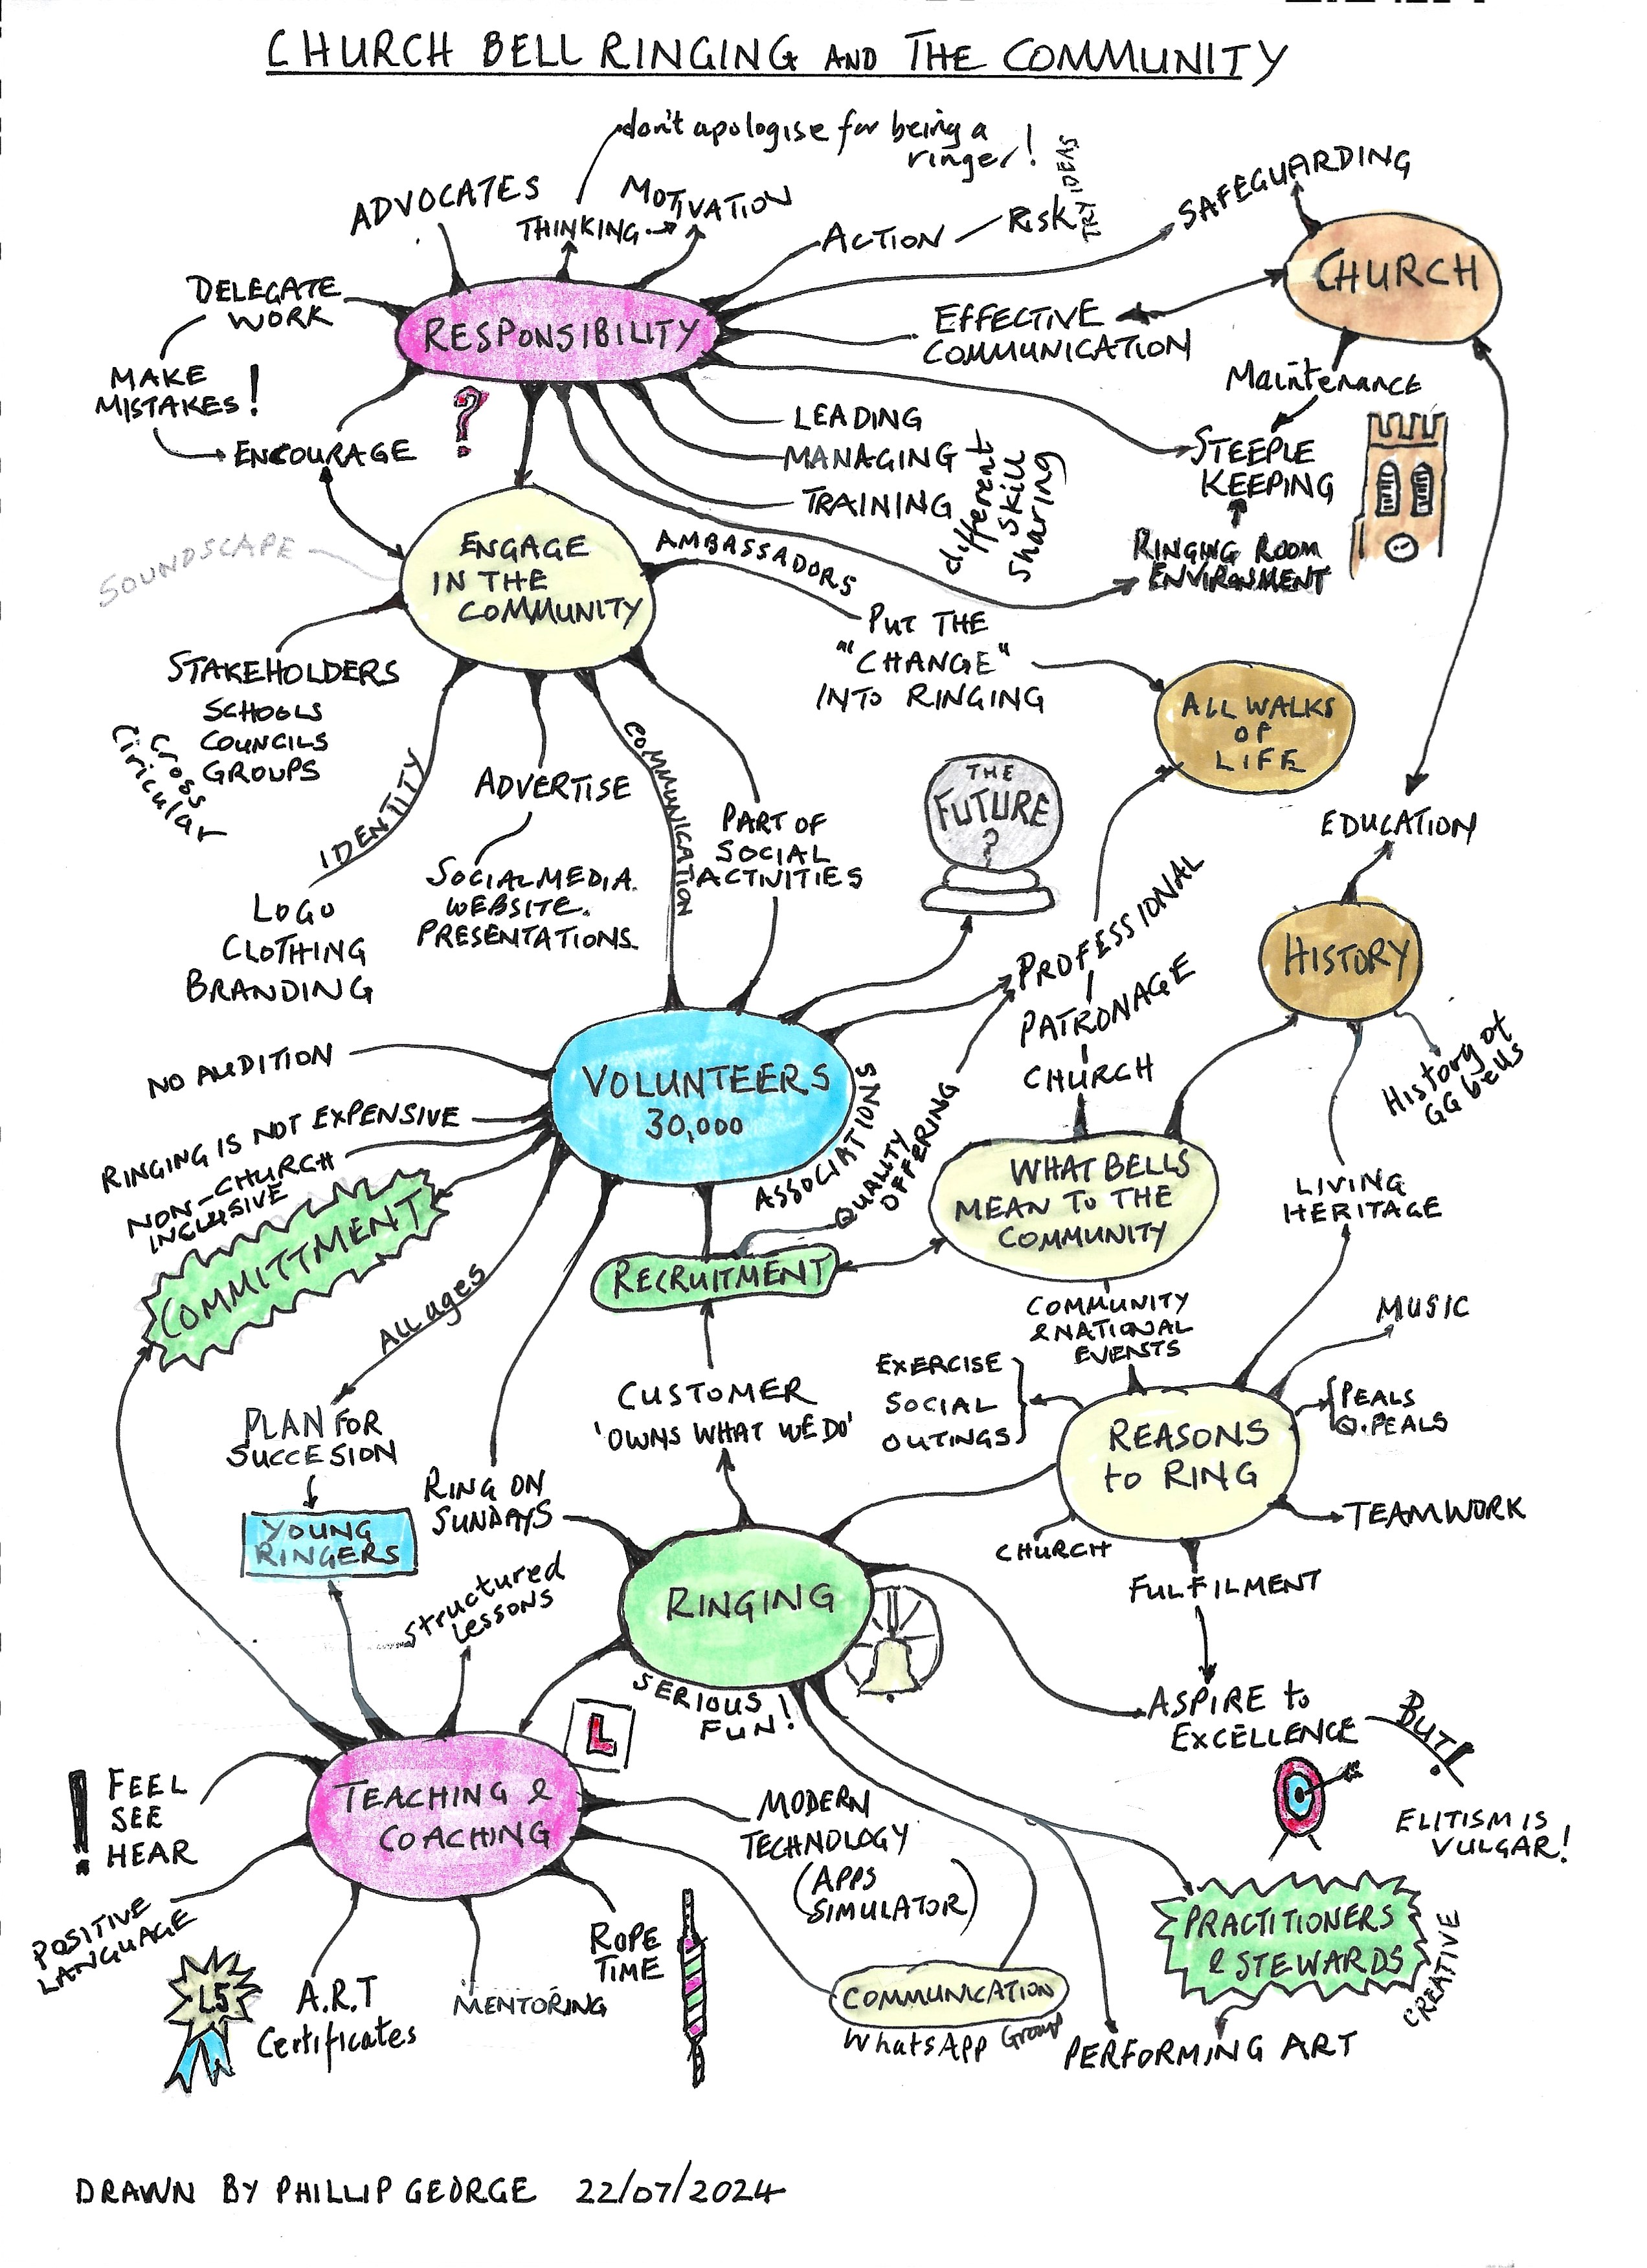 CHURCH BELL RINGING AND THE COMMUNITY
don't apologise for being a
ringer!
ADVOCATES
THINKING
MOTIVATION
ACTION
Risk
TRY IDEAS
SAFEGUARDING
CHURCH
DELEGATE
WORK
RESPONSIBILITY
EFFECTIVE
COMMUNICATION
MAKE
MISTAKES!
ENCOURAGE
?
LEADING
MANAGING
TRAINING
different
skill
sharing
Maintenance
STEEPLE
KEEPING
RINGING ROOM
ENVIRONMENT
SOUNDSCAPE
ENGAGE
IN THE
COMMUNITY
AMBASSADORS
PUT THE
"CHANGE"
INTO RINGING
ALL WALKS
OF
LIFE
STAKEHOLDERS
SCHOOLS
COUNCILS
GROUPS
Cross
Ciricular
IDENTITY
LOGO
CLOTHING
BRANDING
ADVERTISE
SOCIAL MEDIA.
WEBSITE.
PRESENTATIONS.
COMMUNICATION
PART OF
SOCIAL
ACTIVITIES
THE
FUTURE
?
EDUCATION
HISTORY
History of
GG bells
PROFESSIONAL
PATRONAGE
CHURCH
VOLUNTEERS
30,000
NO AUDITION
RINGING IS NOT EXPENSIVE
NON-CHURCH
INCLUSIVE
COMMITTMENT
ASSOCIATIONS
QUALITY
OFFERING
WHAT BELLS
MEAN TO THE
COMMUNITY
LIVING
HERITAGE
RECRUITMENT
All ages
PLAN FOR
SUCCESION
YOUNG
RINGERS
CUSTOMER
'OWNS WHAT WE DO'
COMMUNITY
& NATIONAL
EVENTS
EXERCISE
SOCIAL
OUTINGS
MUSIC
PEALS
Q.PEALS
REASONS
to RING
TEAMWORK
CHURCH
FULFILMENT
RING ON
SUNDAYS
Structured
Lessons
RINGING
SERIOUS
FUN!
L
ASPIRE to
EXCELLENCE
BUT!
ELITISM IS
VULGAR!
FEEL
SEE
HEAR
!
TEACHING &
COACHING
MODERN
TECHNOLOGY
(APPS
SIMULATOR)
POSITIVE
LANGUAGE
L5
A.R.T
Certificates
MENTORING
ROPE
TIME
COMMUNICATION
WhatsApp Group
PRACTITIONERS
& STEWARDS
CREATIVE
PERFORMING ART
DRAWN BY PHILLIP GEORGE 22/07/2024